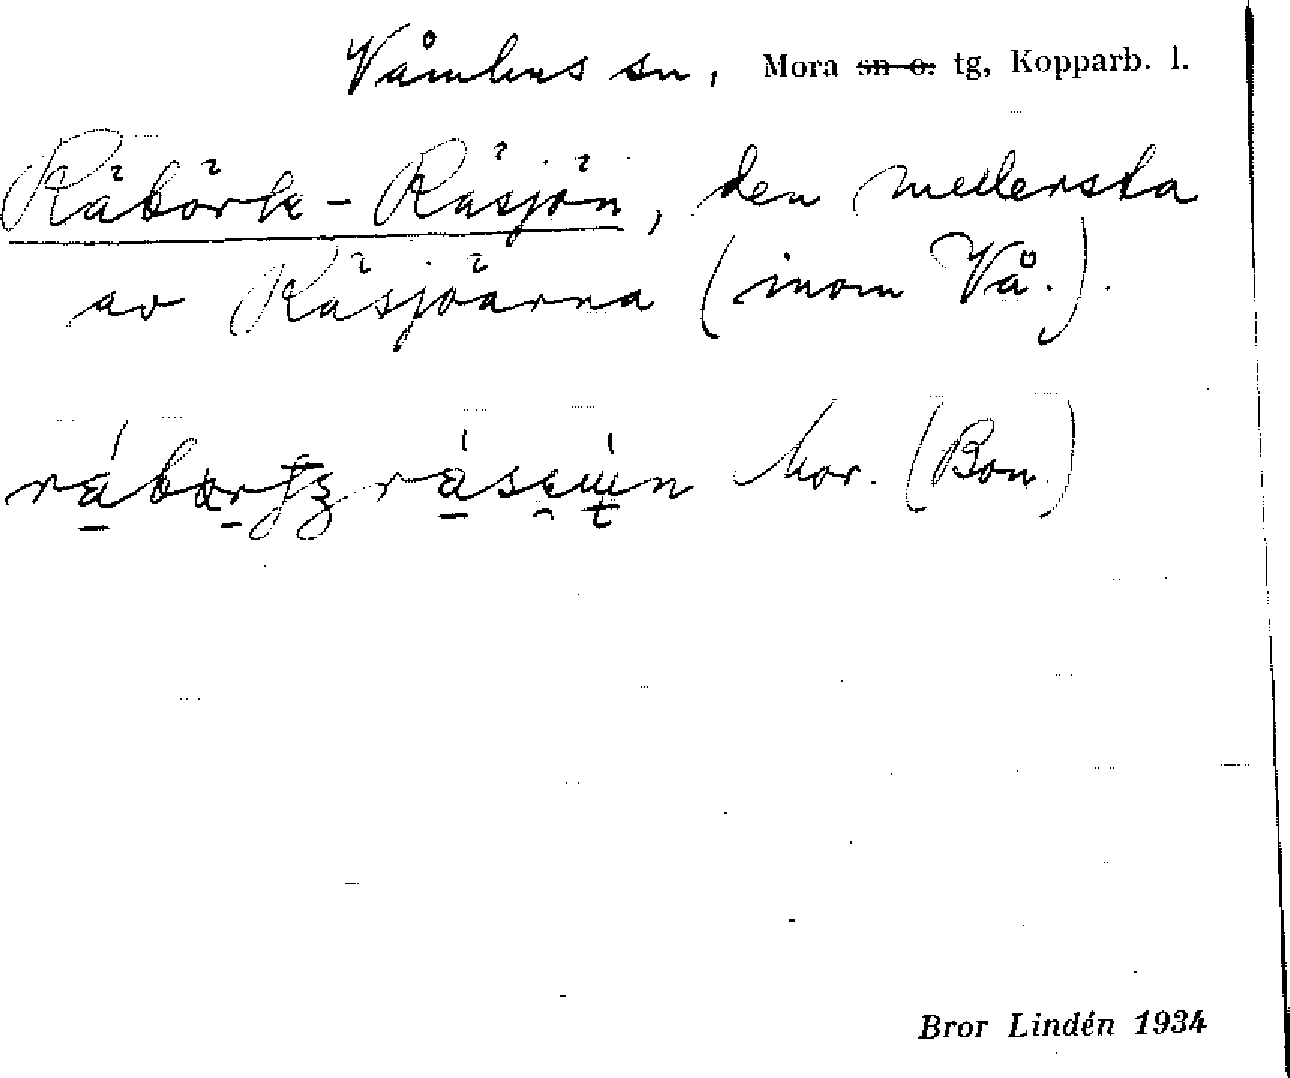 Våmhus sn, Mora sn o. tg, Kopparb. l.
Råbörk-Råsjön, den mellersta
av Råsjöarna (inom Vå.).
hor. (Bon.)
Bror Lindén 1934